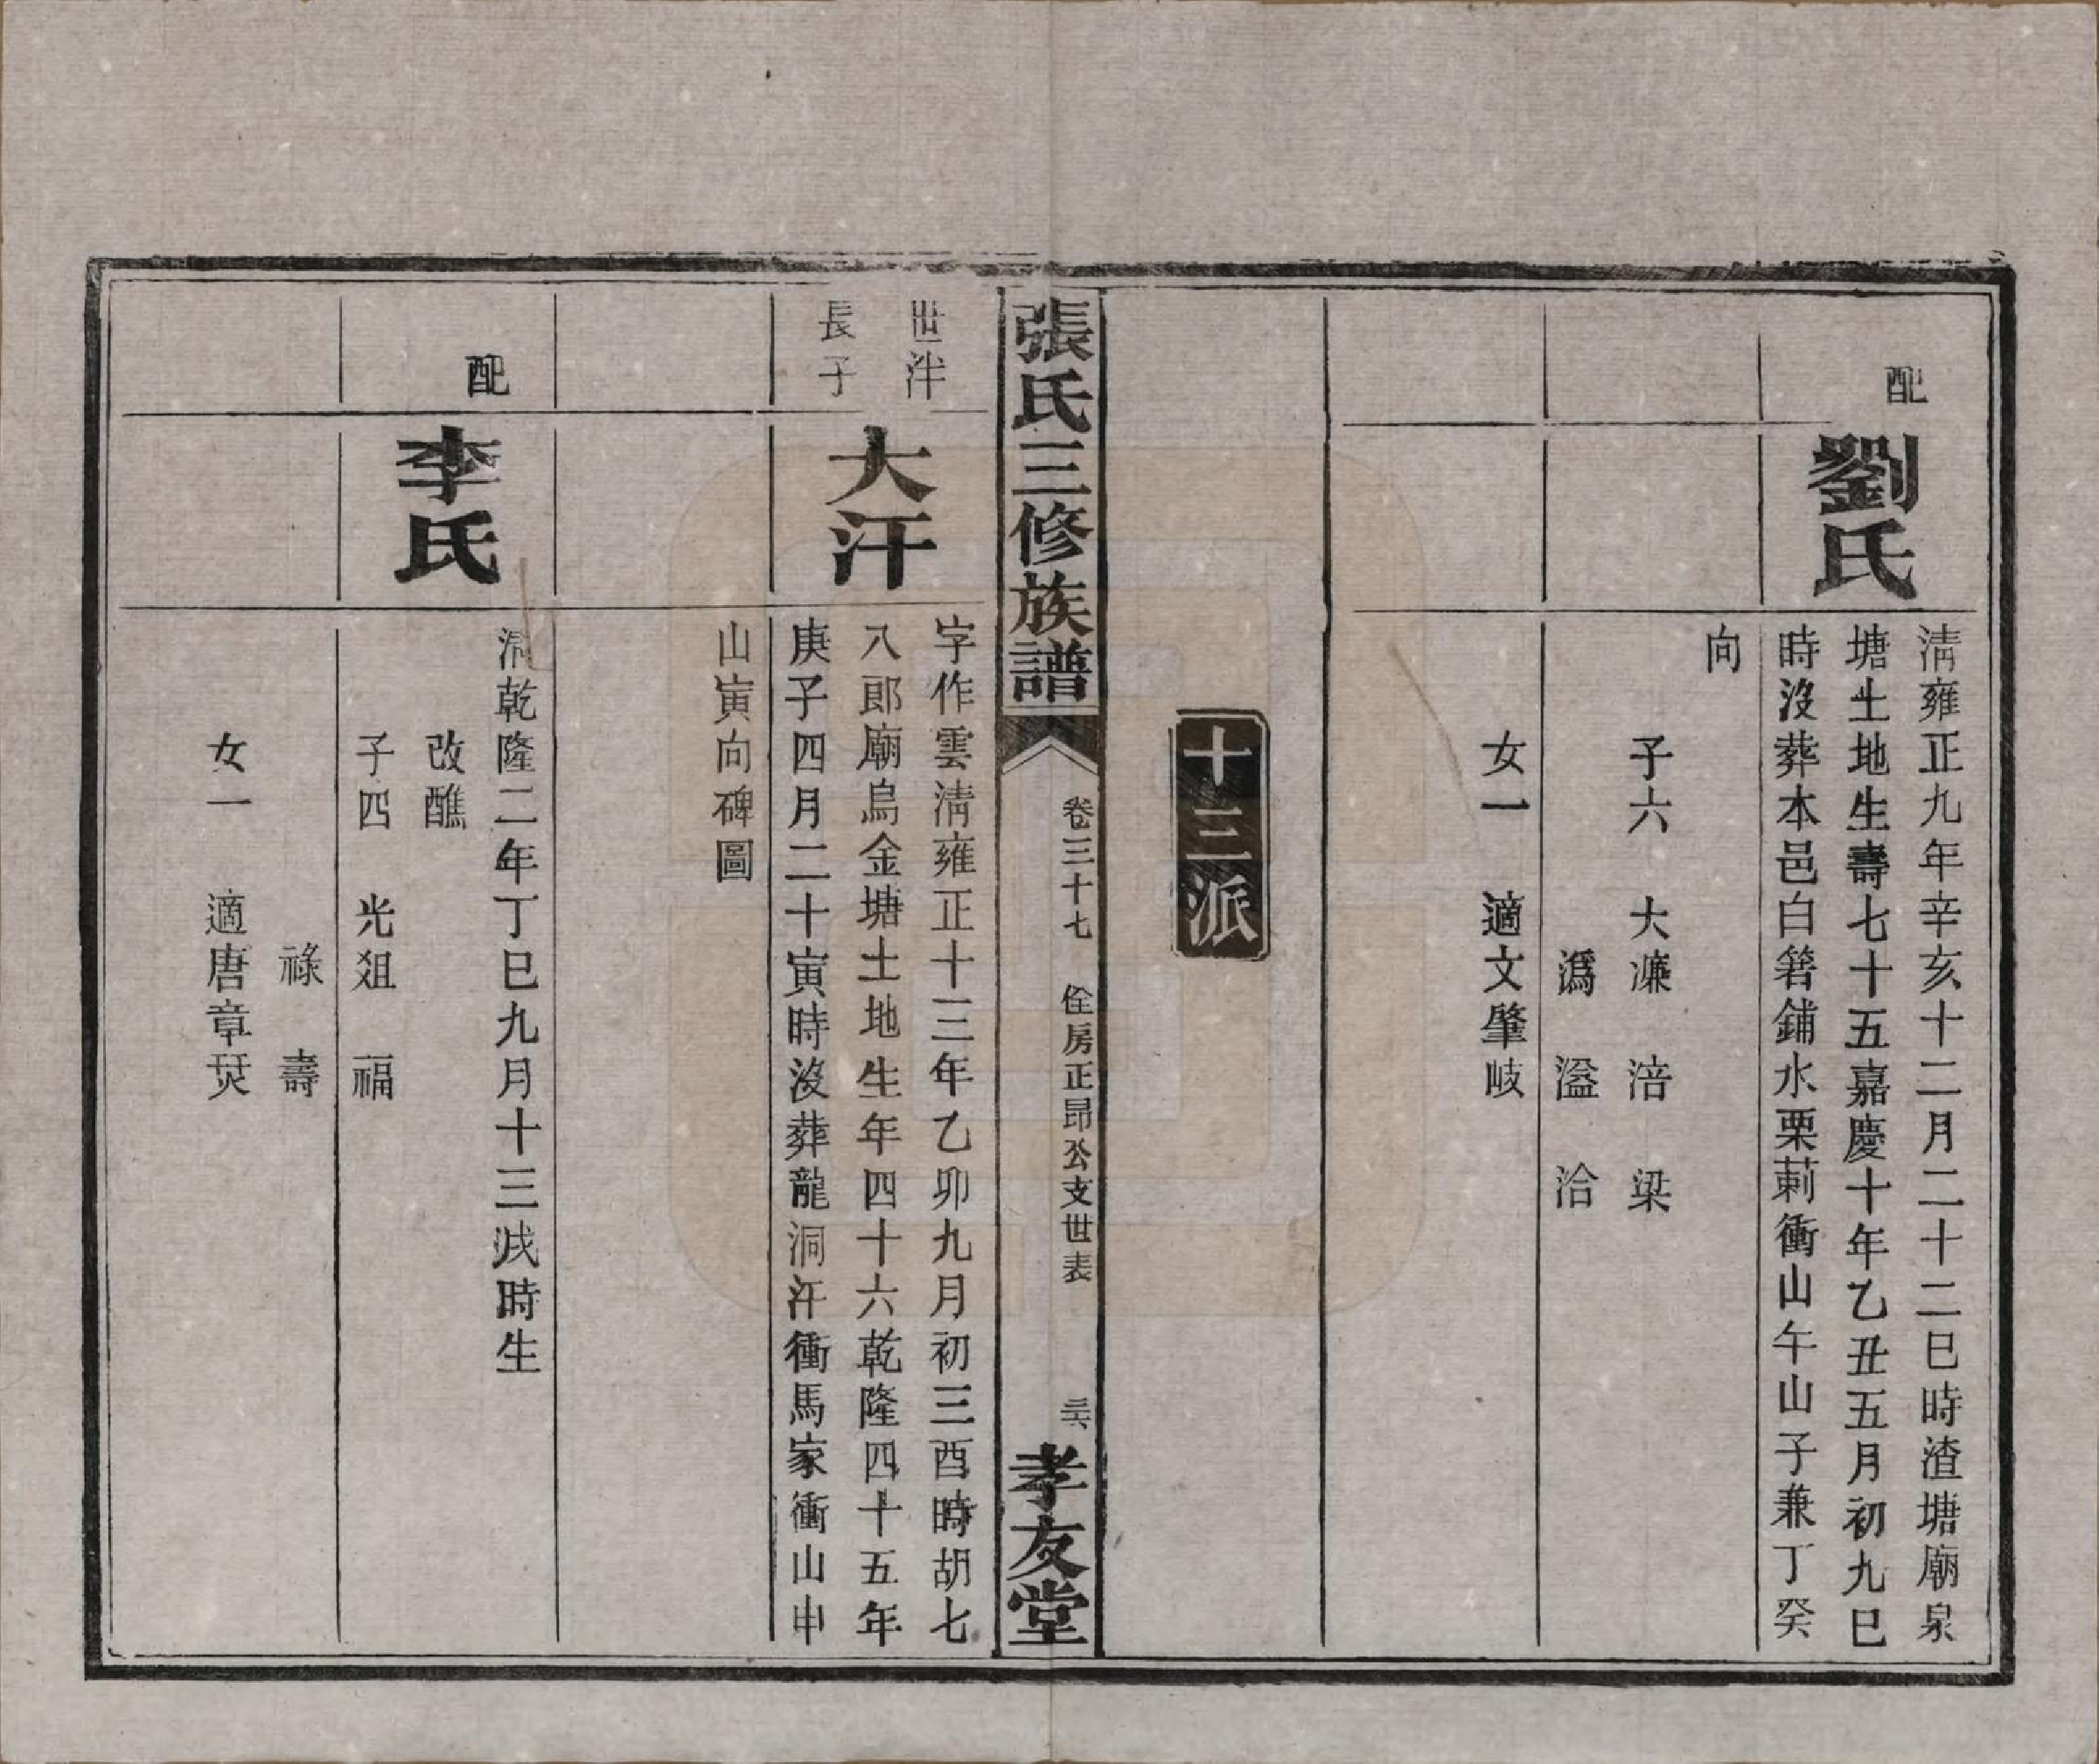 配
劉氏
淸雍正九年辛亥十二月二十二巳時渣塘廟泉
塘土地生壽七十五嘉慶十年乙丑五月初九巳
時沒葬本邑白箬鋪水栗莿衝山午山子兼丁癸
向
子六 大濂 涪 梁
潙 溢 洽
女一 適文肇岐
十三派
張氏三修族譜 卷三十七 佺房正昂公支世表 三六 孝友堂
世泮
長子
大汗
字作雲淸雍正十三年乙卯九月初三酉時胡七
八郎廟烏金塘土地生年四十六乾隆四十五年
庚子四月二十寅時沒葬龍洞汗衝馬家衝山申
山寅向碑圖
配
李氏
淸乾隆二年丁巳九月十三戌時生
改醮
子四 光爼 福
祿 壽
女一 適唐章焋